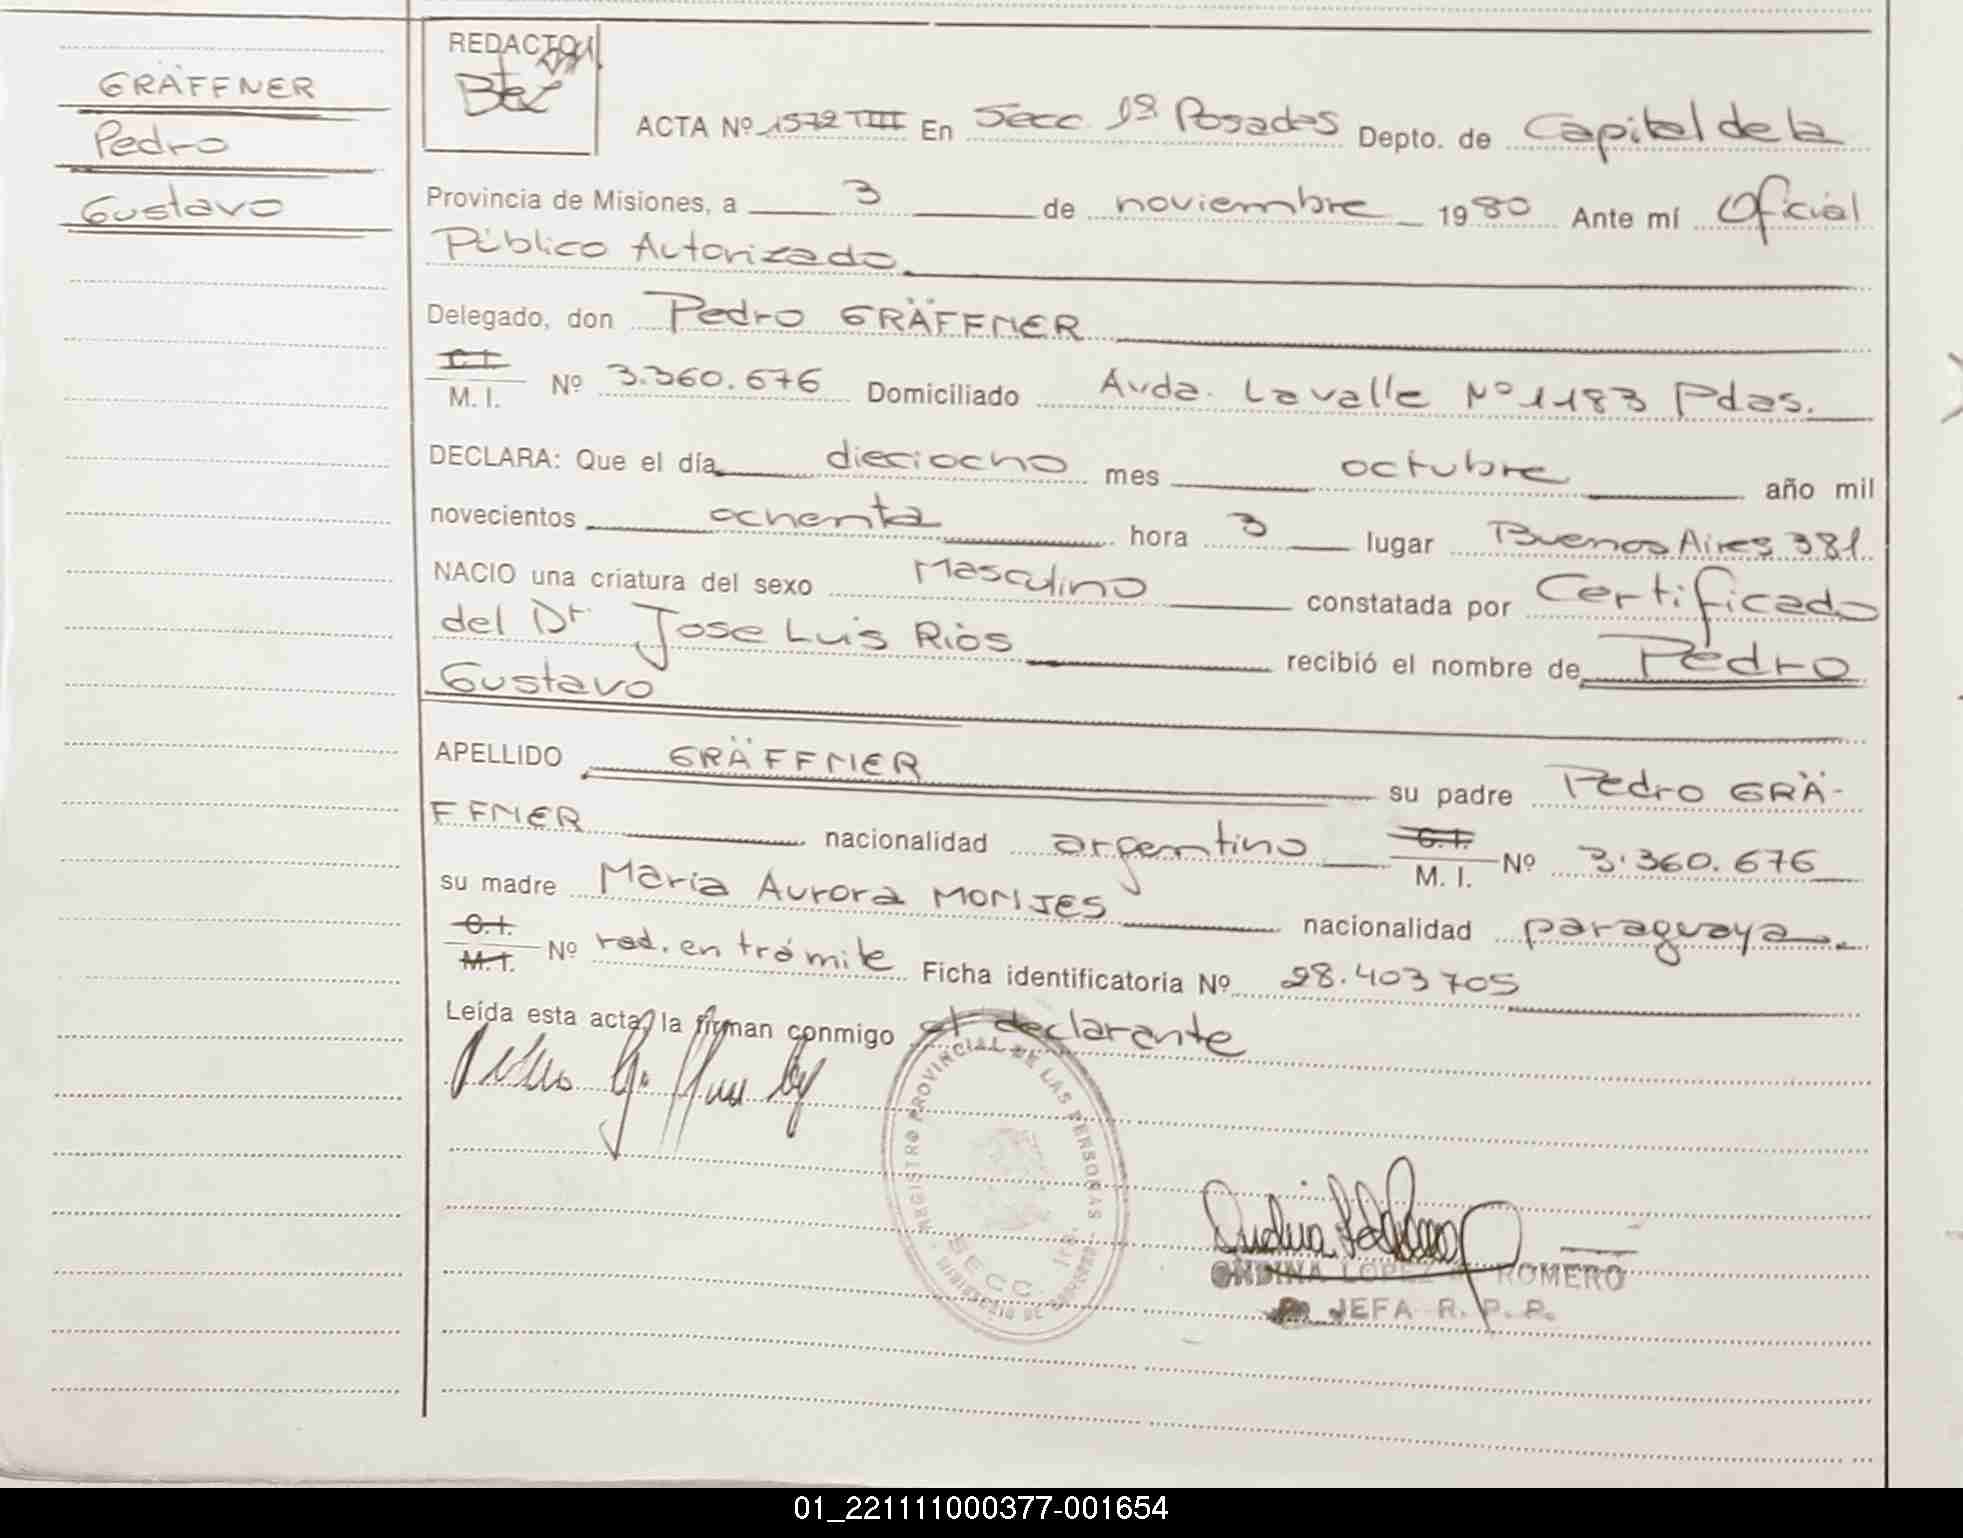 GRÄFFNER
Pedro
Gustavo
REDACTOR
ACTA Nº 1572 TIII En Secc 1ª Posadas Depto. de Capital de la
Provincia de Misiones, a 3 de noviembre 1980 Ante mí Oficial
Público Autorizado
Delegado, don Pedro GRÄFFNER
C.I.
M. I. Nº 3.360.676 Domiciliado Avda. Lavalle Nº 1183 Pdas.
DECLARA: Que el día dieciocho mes octubre año mil
novecientos ochenta hora 3 lugar Buenos Aires 381
NACIO una criatura del sexo Masculino constatada por Certificado
del Dr Jose Luis Ríos recibió el nombre de Pedro
Gustavo
APELLIDO GRÄFFNER su padre Pedro GRÄ-
FFNER nacionalidad argentino C.I. M. I. Nº 3.360.676
su madre María Aurora MONJES nacionalidad paraguaya.
C.I.
M.I. Nº rad. en trámite Ficha identificatoria Nº 28.403705
Leída esta acta, la firman conmigo el declarante
REGISTRO PROVINCIAL DE LAS PERSONAS
SECC. 1ra.
MINISTERIO DE GOBIERNO
ONDINA LOPEZ ROMERO
JEFA R. P. P.
01_221111000377-001654